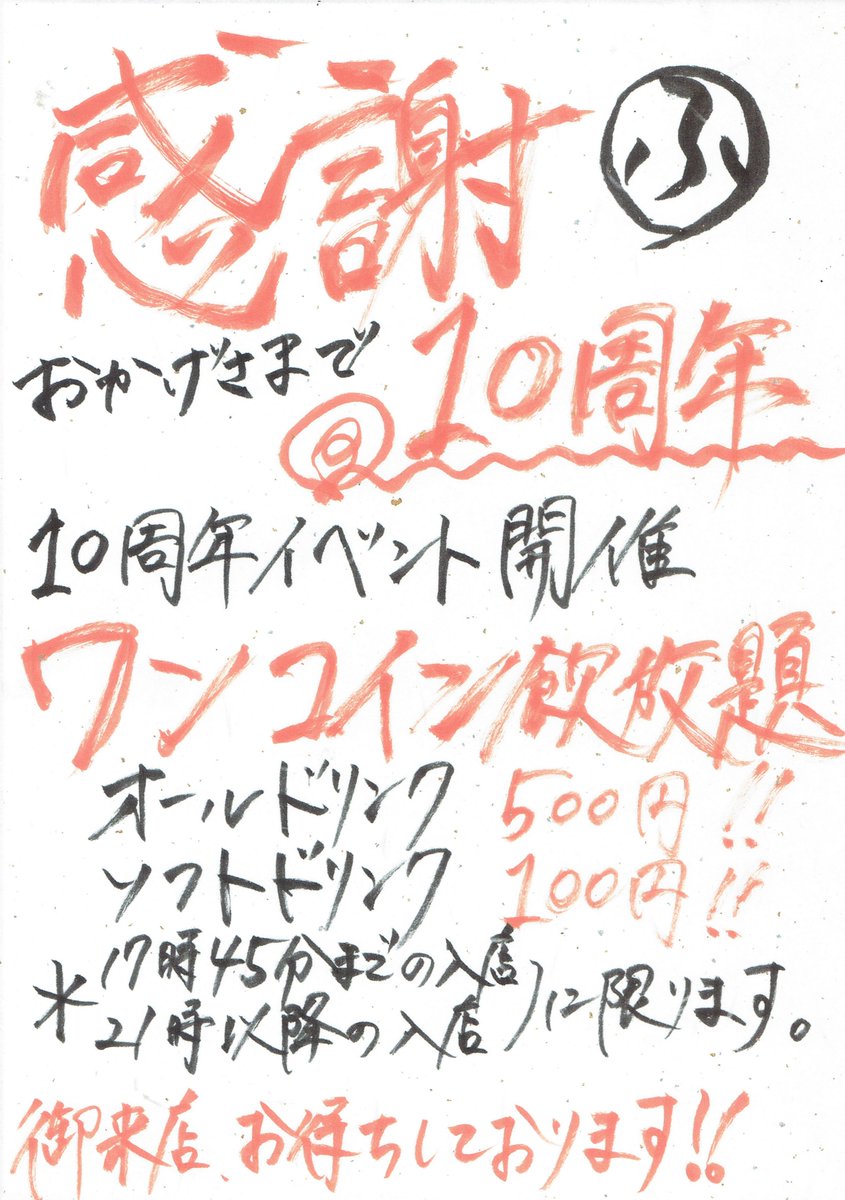 感謝 ㋫
おかげさまで
10周年
10周年イベント開催
ワンコイン飲放題
オールドリンク 500円!!
ソフトドリンク 100円!!
*17時45分までの入店
21時以降の入店)に限ります。
御来店、お待ちしております!!